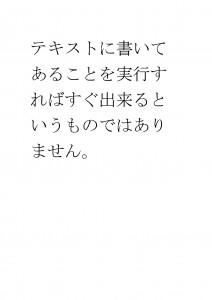 テキストに書いて
あることを実行す
ればすぐ出来ると
いうものではあり
ません。